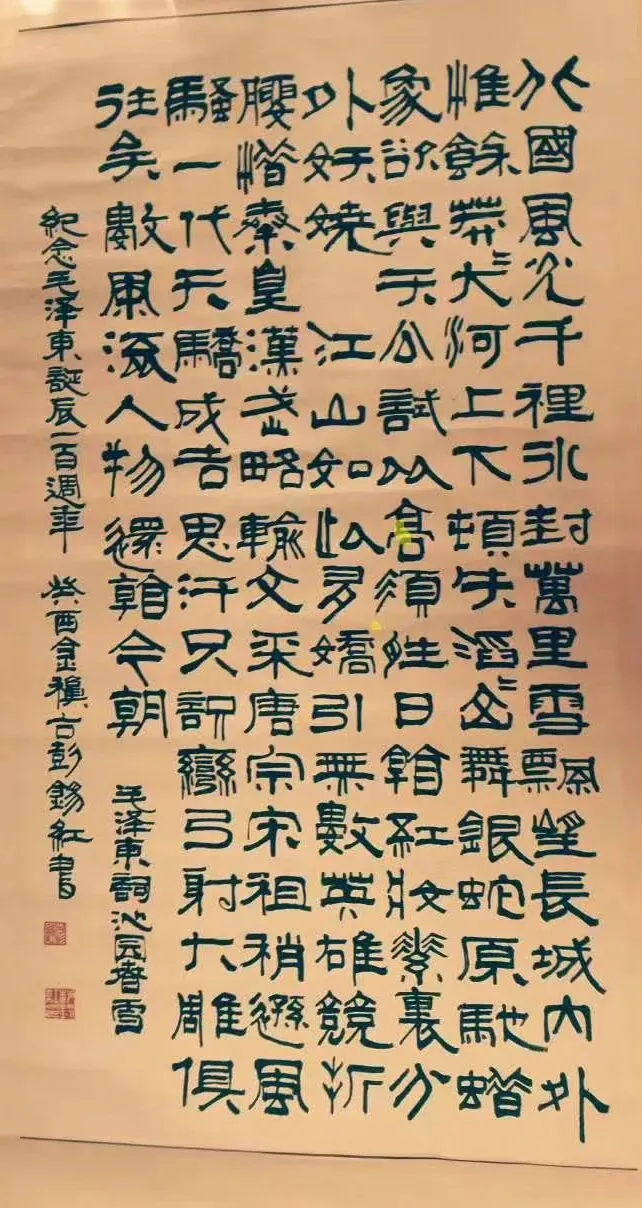 北國風光千裡冰封萬里雪飄望長城內外
惟餘莽〻大河上下頓失滔〻山舞銀蛇原馳蜡
象欲與天公試比高須晴日看紅妝素裹分
外妖嬈 江山如此多嬌引無數英雄競折
腰惜秦皇漢武略輸文采唐宗宋祖稍遜風
騷一代天驕成吉思汗只識彎弓射大雕俱
往矣數風流人物還看今朝 毛泽東詞沁園春雪
紀念毛泽東誕辰一百週年 癸酉金穐古彭錫紅書